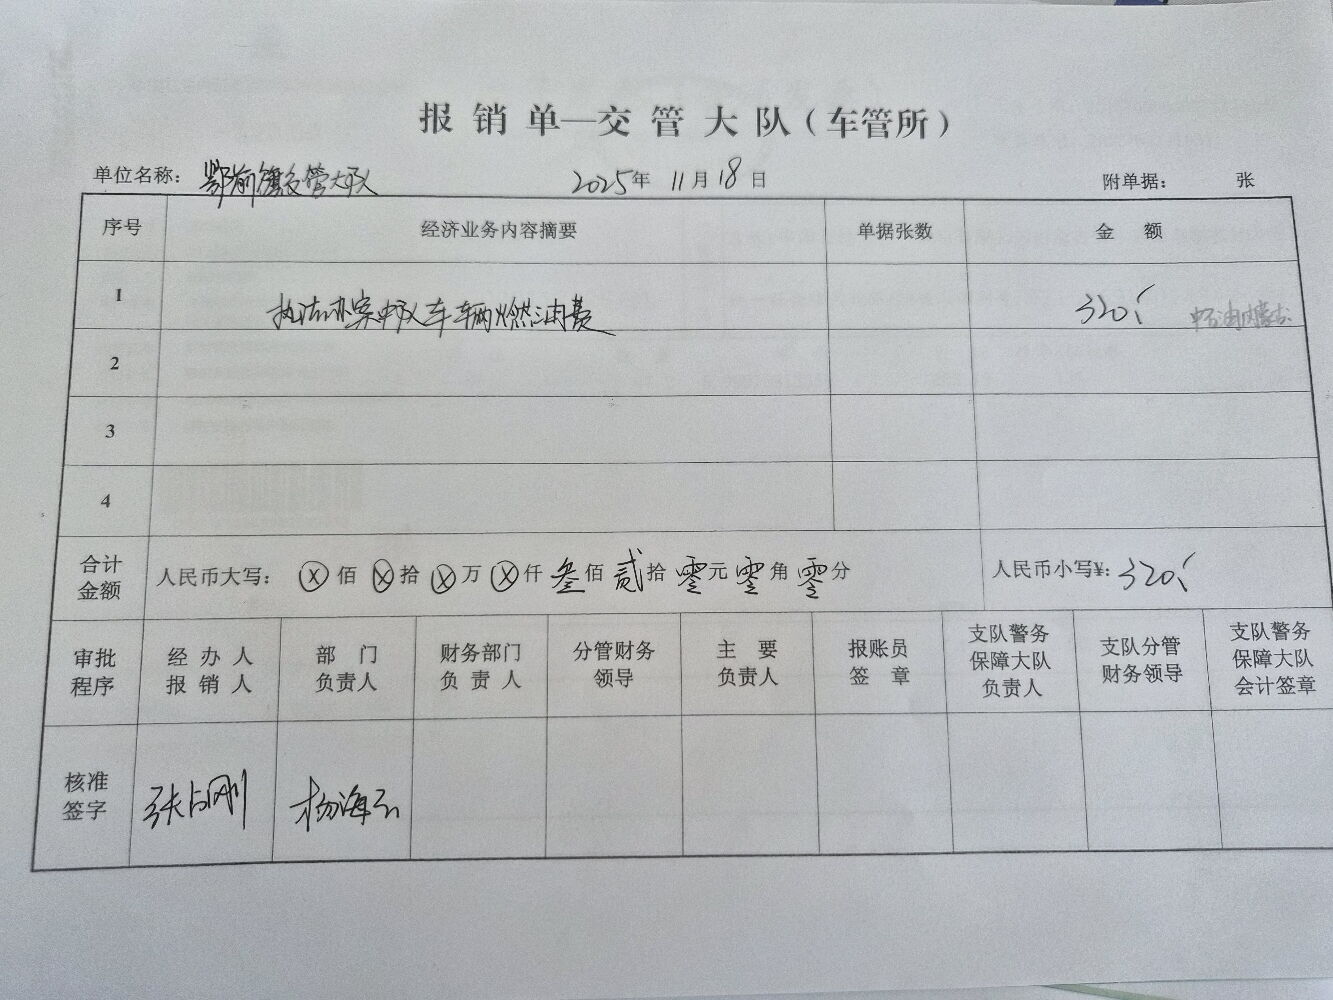 报销单—交管大队（车管所）
单位名称：鄂前旗交管大队 2025年11月18日 附单据： 张
序号 经济业务内容摘要 单据张数 金额
1 执法办案中队车辆燃油费 320.-
2
3
4
合计金额 人民币大写：ⓧ佰ⓧ拾ⓧ万ⓧ仟叁佰贰拾零元零角零分 人民币小写¥:320.-
审批程序 经办人报销人 部门负责人 财务部门负责人 分管财务领导 主要负责人 报账员签章 支队警务保障大队负责人 支队分管财务领导 支队警务保障大队会计签章
核准签字 张占刚 杨海云